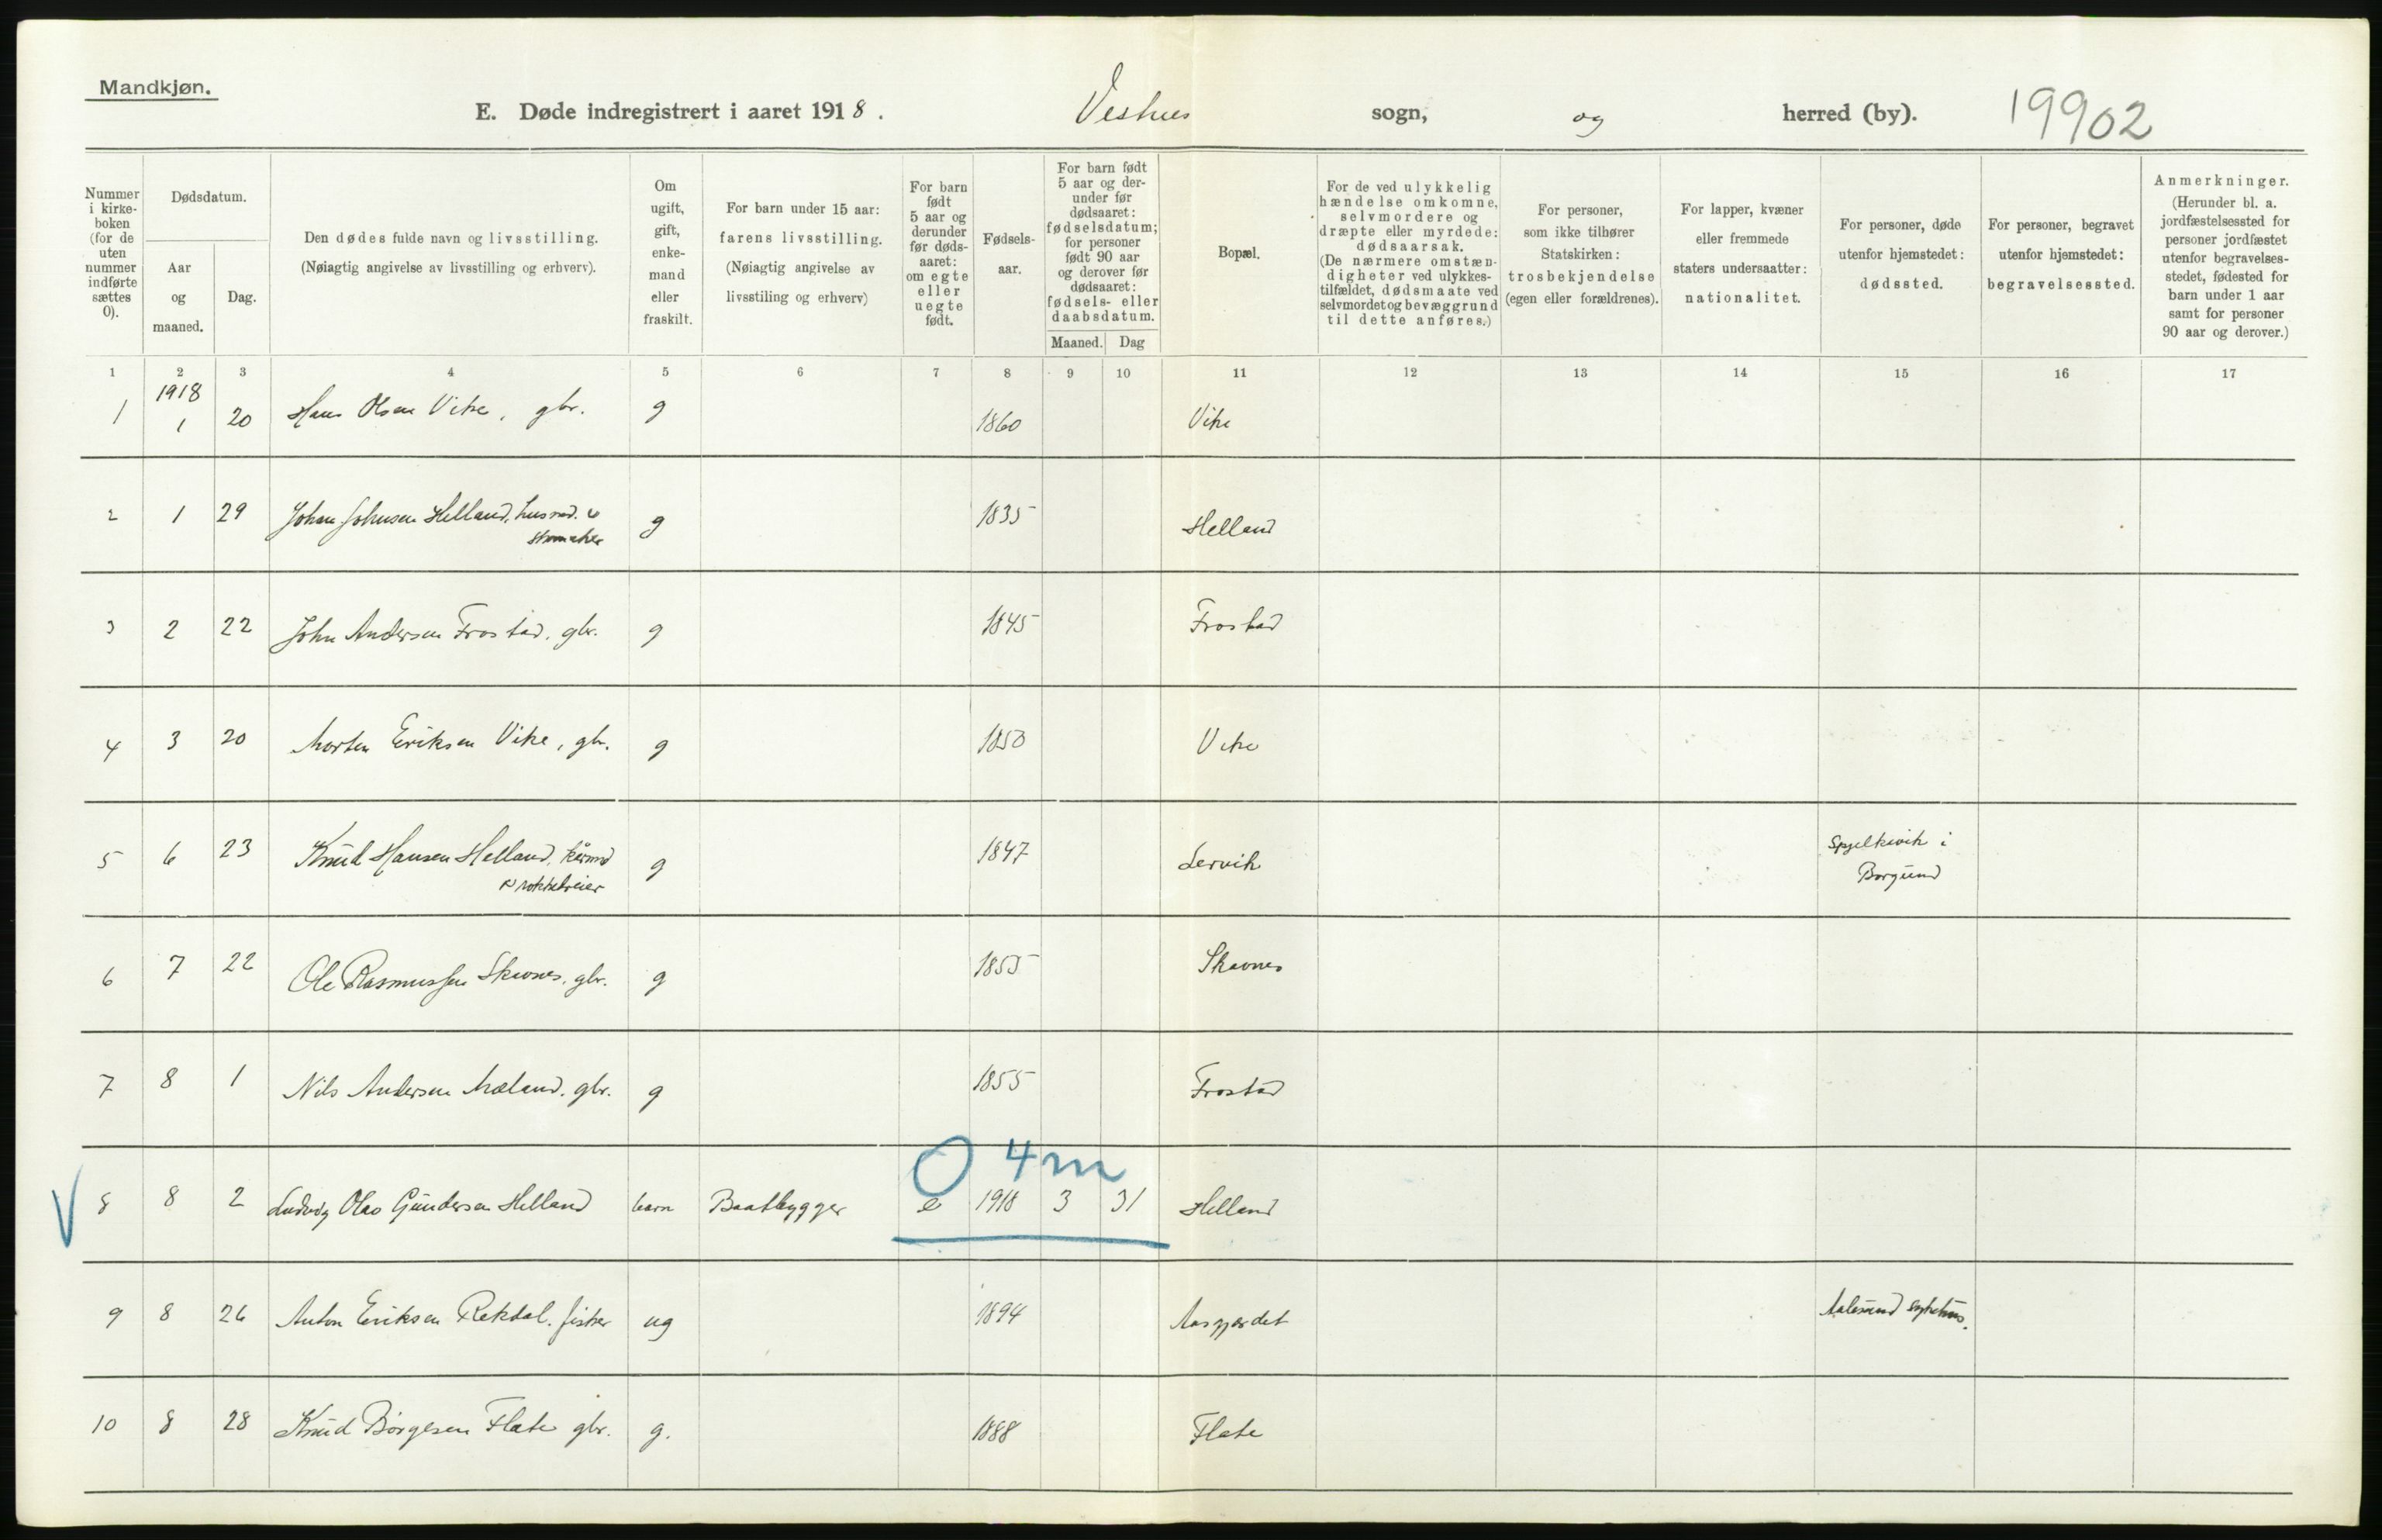 Mandkjøn.
E. Døde indregistrert i aaret 1918. Vestnes sogn, og herred (by). 19902
Nummer i kirke- boken (for de uten nummer indførte sættes 0).
Dødsdatum.
Aar og maaned.
Dag.
Den dødes fulde navn og livsstilling.
(Nøiagtig angivelse av livsstilling og erhverv).
Om ugift, gift, enke- mand eller fraskilt.
For barn under 15 aar:
farens livsstilling.
(Nøiagtig angivelse av
livsstiling og erhverv)
For barn født 5 aar og derunder før døds- aaret: om egte eller uegte født.
Fødsels- aar.
For barn født 5 aar og der- under før dødsaaret: fødselsdatum; for personer født 90 aar og derover før dødsaaret: fødsels- eller daabsdatum.
Maaned. Dag
Bopæl.
For de ved ulykkelig hændelse omkomne, selvmordere og dræpte eller myrdede: dødsaarsak. (De nærmere omstæn- digheter ved ulykkes- tilfældet, dødsmaate ved selvmordet og bevæggrund til dette anføres.)
For personer, som ikke tilhører Statskirken: trosbekjendelse (egen eller forældrenes).
For lapper, kvæner eller fremmede staters undersaatter: nationalitet.
For personer, døde utenfor hjemstedet: dødssted.
For personer, begravet utenfor hjemstedet: begravelsessted.
Anmerkninger. (Herunder bl. a. jordfæstelsessted for personer jordfæstet utenfor begravelses- stedet, fødested for barn under 1 aar samt for personer 90 aar og derover.)
1 2 3 4 5 6 7 8 9 10 11 12 13 14 15 16 17
1918
1 1 20 Hans Olsen Vike, gbr. g 1860 Vike
2 1 29 Johan Johnsen Helland, husmd. & g 1835 Helland
skomaker
3 2 22 John Andersen Frostad, gbr. g 1845 Frostad
4 3 20 Morten Eriksen Vike, gbr. g 1850 Vike
5 6 23 Knud Hansen Helland, kårmd g 1847 Lervik Spjelkavik i
& rokkedreier Borgund
6 7 22 Ole Rasmussen Skavnes, gbr. g 1855 Skavnes
7 8 1 Nils Andersen Mæland, gbr. g 1855 Frostad
0 4 m
V 8 8 2 Ludvig Olav Gundersen Helland barn Baatbygger e 1918 3 31 Helland
9 8 26 Anton Eriksen Rekdal, fisker ug 1894 Aasgjerdet Aalesund sykehus.
10 8 28 Knud Børgesen Flate gbr. g. 1888 Flate